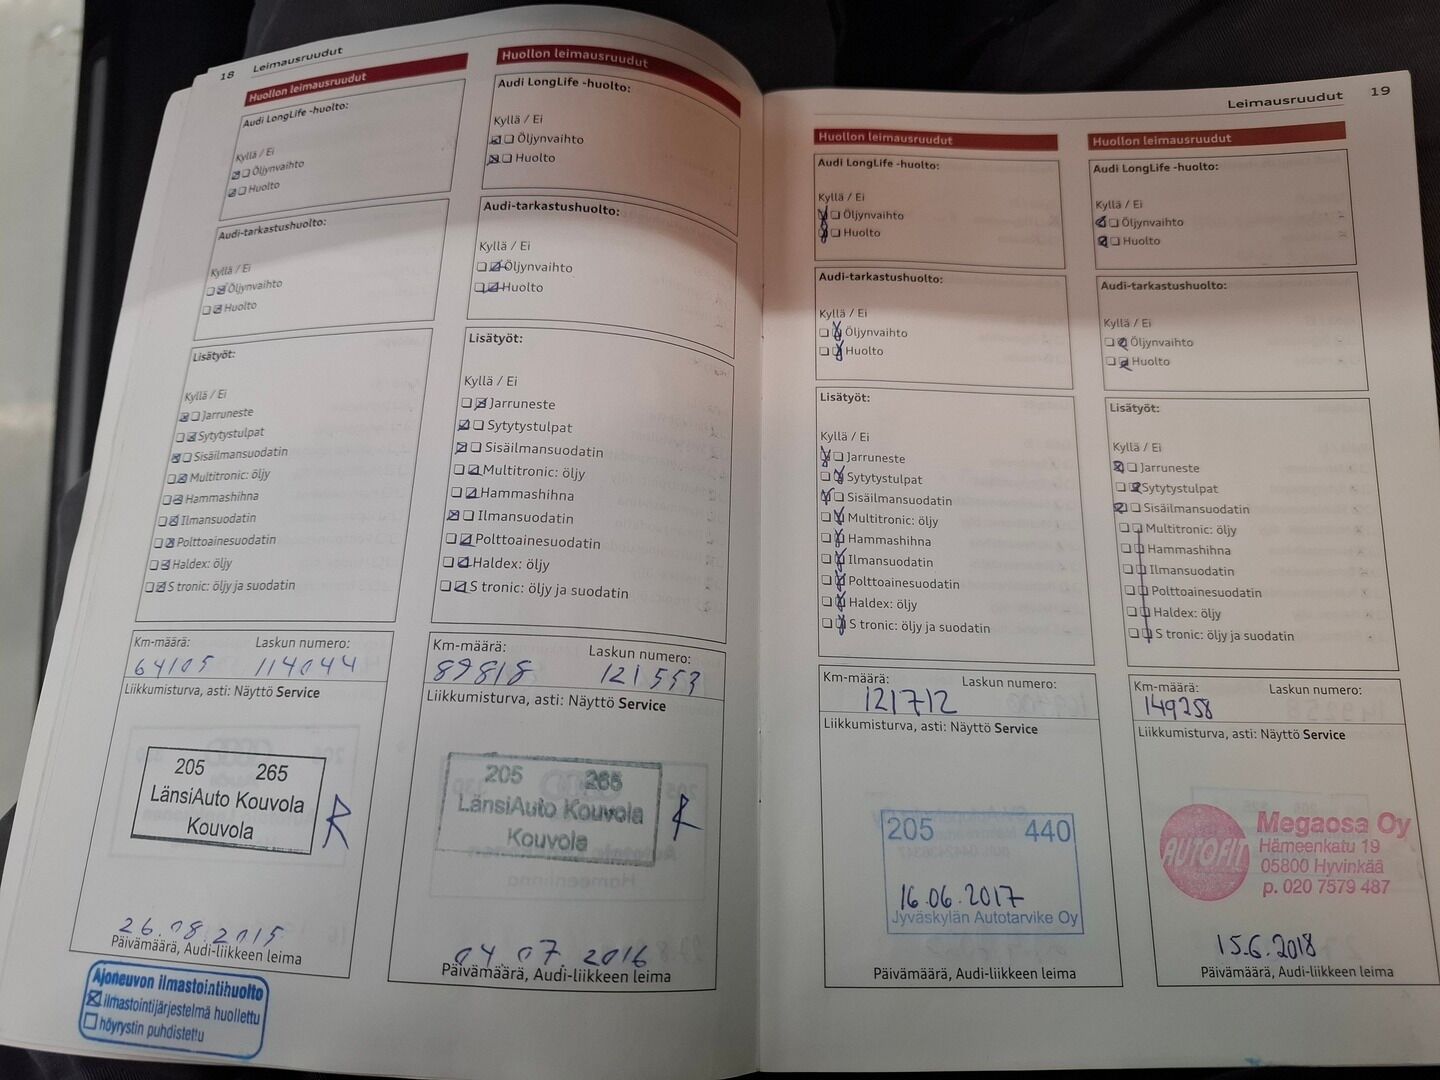 18 Leimausruudut
Huollon leimausruudut
Audi LongLife -huolto:
Kyllä / Ei
Öljynvaihto
Huolto
Audi-tarkastushuolto:
Kyllä / Ei
Öljynvaihto
Huolto
Lisätyöt:
Kyllä / Ei
Jarruneste
Sytytystulpat
Sisäilmansuodatin
Multitronic: öljy
Hammashihna
Ilmansuodatin
Polttoainesuodatin
Haldex: öljy
S tronic: öljy ja suodatin
Km-määrä: Laskun numero:
64105 114044
Liikkumisturva, asti: Näyttö Service
205 265
LänsiAuto Kouvola
Kouvola
R
26.08.2015
Päivämäärä, Audi-liikkeen leima
Ajoneuvon ilmastointihuolto
ilmastointijärjestelmä huollettu
höyrystin puhdistettu
Huollon leimausruudut
Audi LongLife -huolto:
Kyllä / Ei
Öljynvaihto
Huolto
Audi-tarkastushuolto:
Kyllä / Ei
Öljynvaihto
Huolto
Lisätyöt:
Kyllä / Ei
Jarruneste
Sytytystulpat
Sisäilmansuodatin
Multitronic: öljy
Hammashihna
Ilmansuodatin
Polttoainesuodatin
Haldex: öljy
S tronic: öljy ja suodatin
Km-määrä: Laskun numero:
89818 121553
Liikkumisturva, asti: Näyttö Service
205 265
LänsiAuto Kouvola
Kouvola
R
04.07.2016
Päivämäärä, Audi-liikkeen leima
Leimausruudut 19
Huollon leimausruudut
Audi LongLife -huolto:
Kyllä / Ei
Öljynvaihto
Huolto
Audi-tarkastushuolto:
Kyllä / Ei
Öljynvaihto
Huolto
Lisätyöt:
Kyllä / Ei
Jarruneste
Sytytystulpat
Sisäilmansuodatin
Multitronic: öljy
Hammashihna
Ilmansuodatin
Polttoainesuodatin
Haldex: öljy
S tronic: öljy ja suodatin
Km-määrä: Laskun numero:
121712
Liikkumisturva, asti: Näyttö Service
205 440
16.06.2017
Jyväskylän Autotarvike Oy
Päivämäärä, Audi-liikkeen leima
Huollon leimausruudut
Audi LongLife -huolto:
Kyllä / Ei
Öljynvaihto
Huolto
Audi-tarkastushuolto:
Kyllä / Ei
Öljynvaihto
Huolto
Lisätyöt:
Kyllä / Ei
Jarruneste
Sytytystulpat
Sisäilmansuodatin
Multitronic: öljy
Hammashihna
Ilmansuodatin
Polttoainesuodatin
Haldex: öljy
S tronic: öljy ja suodatin
Km-määrä: Laskun numero:
149258
Liikkumisturva, asti: Näyttö Service
AUTOFIT
Megaosa Oy
Hämeenkatu 19
05800 Hyvinkää
p. 020 7579 487
15.6.2018
Päivämäärä, Audi-liikkeen leima